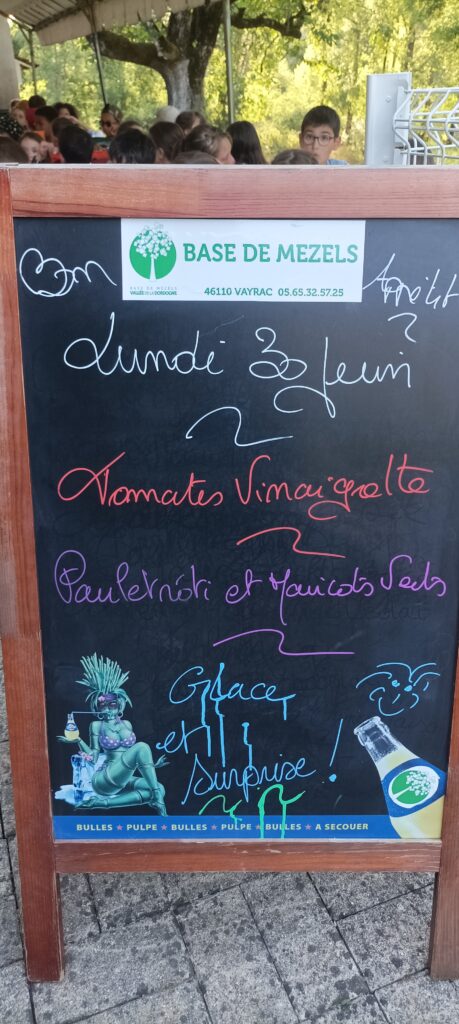 BASE DE MEZELS
BASE DE MEZELS
VALLÉE DE LA DORDOGNE
46110 VAYRAC 05.65.32.57.25
Bon Appétit
Lundi 30 Juin
Tomates Vinaigrette
Poulet rôti et Haricots Verts
Glace
et
Surprise !
BULLES ★ PULPE ★ BULLES ★ PULPE ★ BULLES ★ A SECOUER